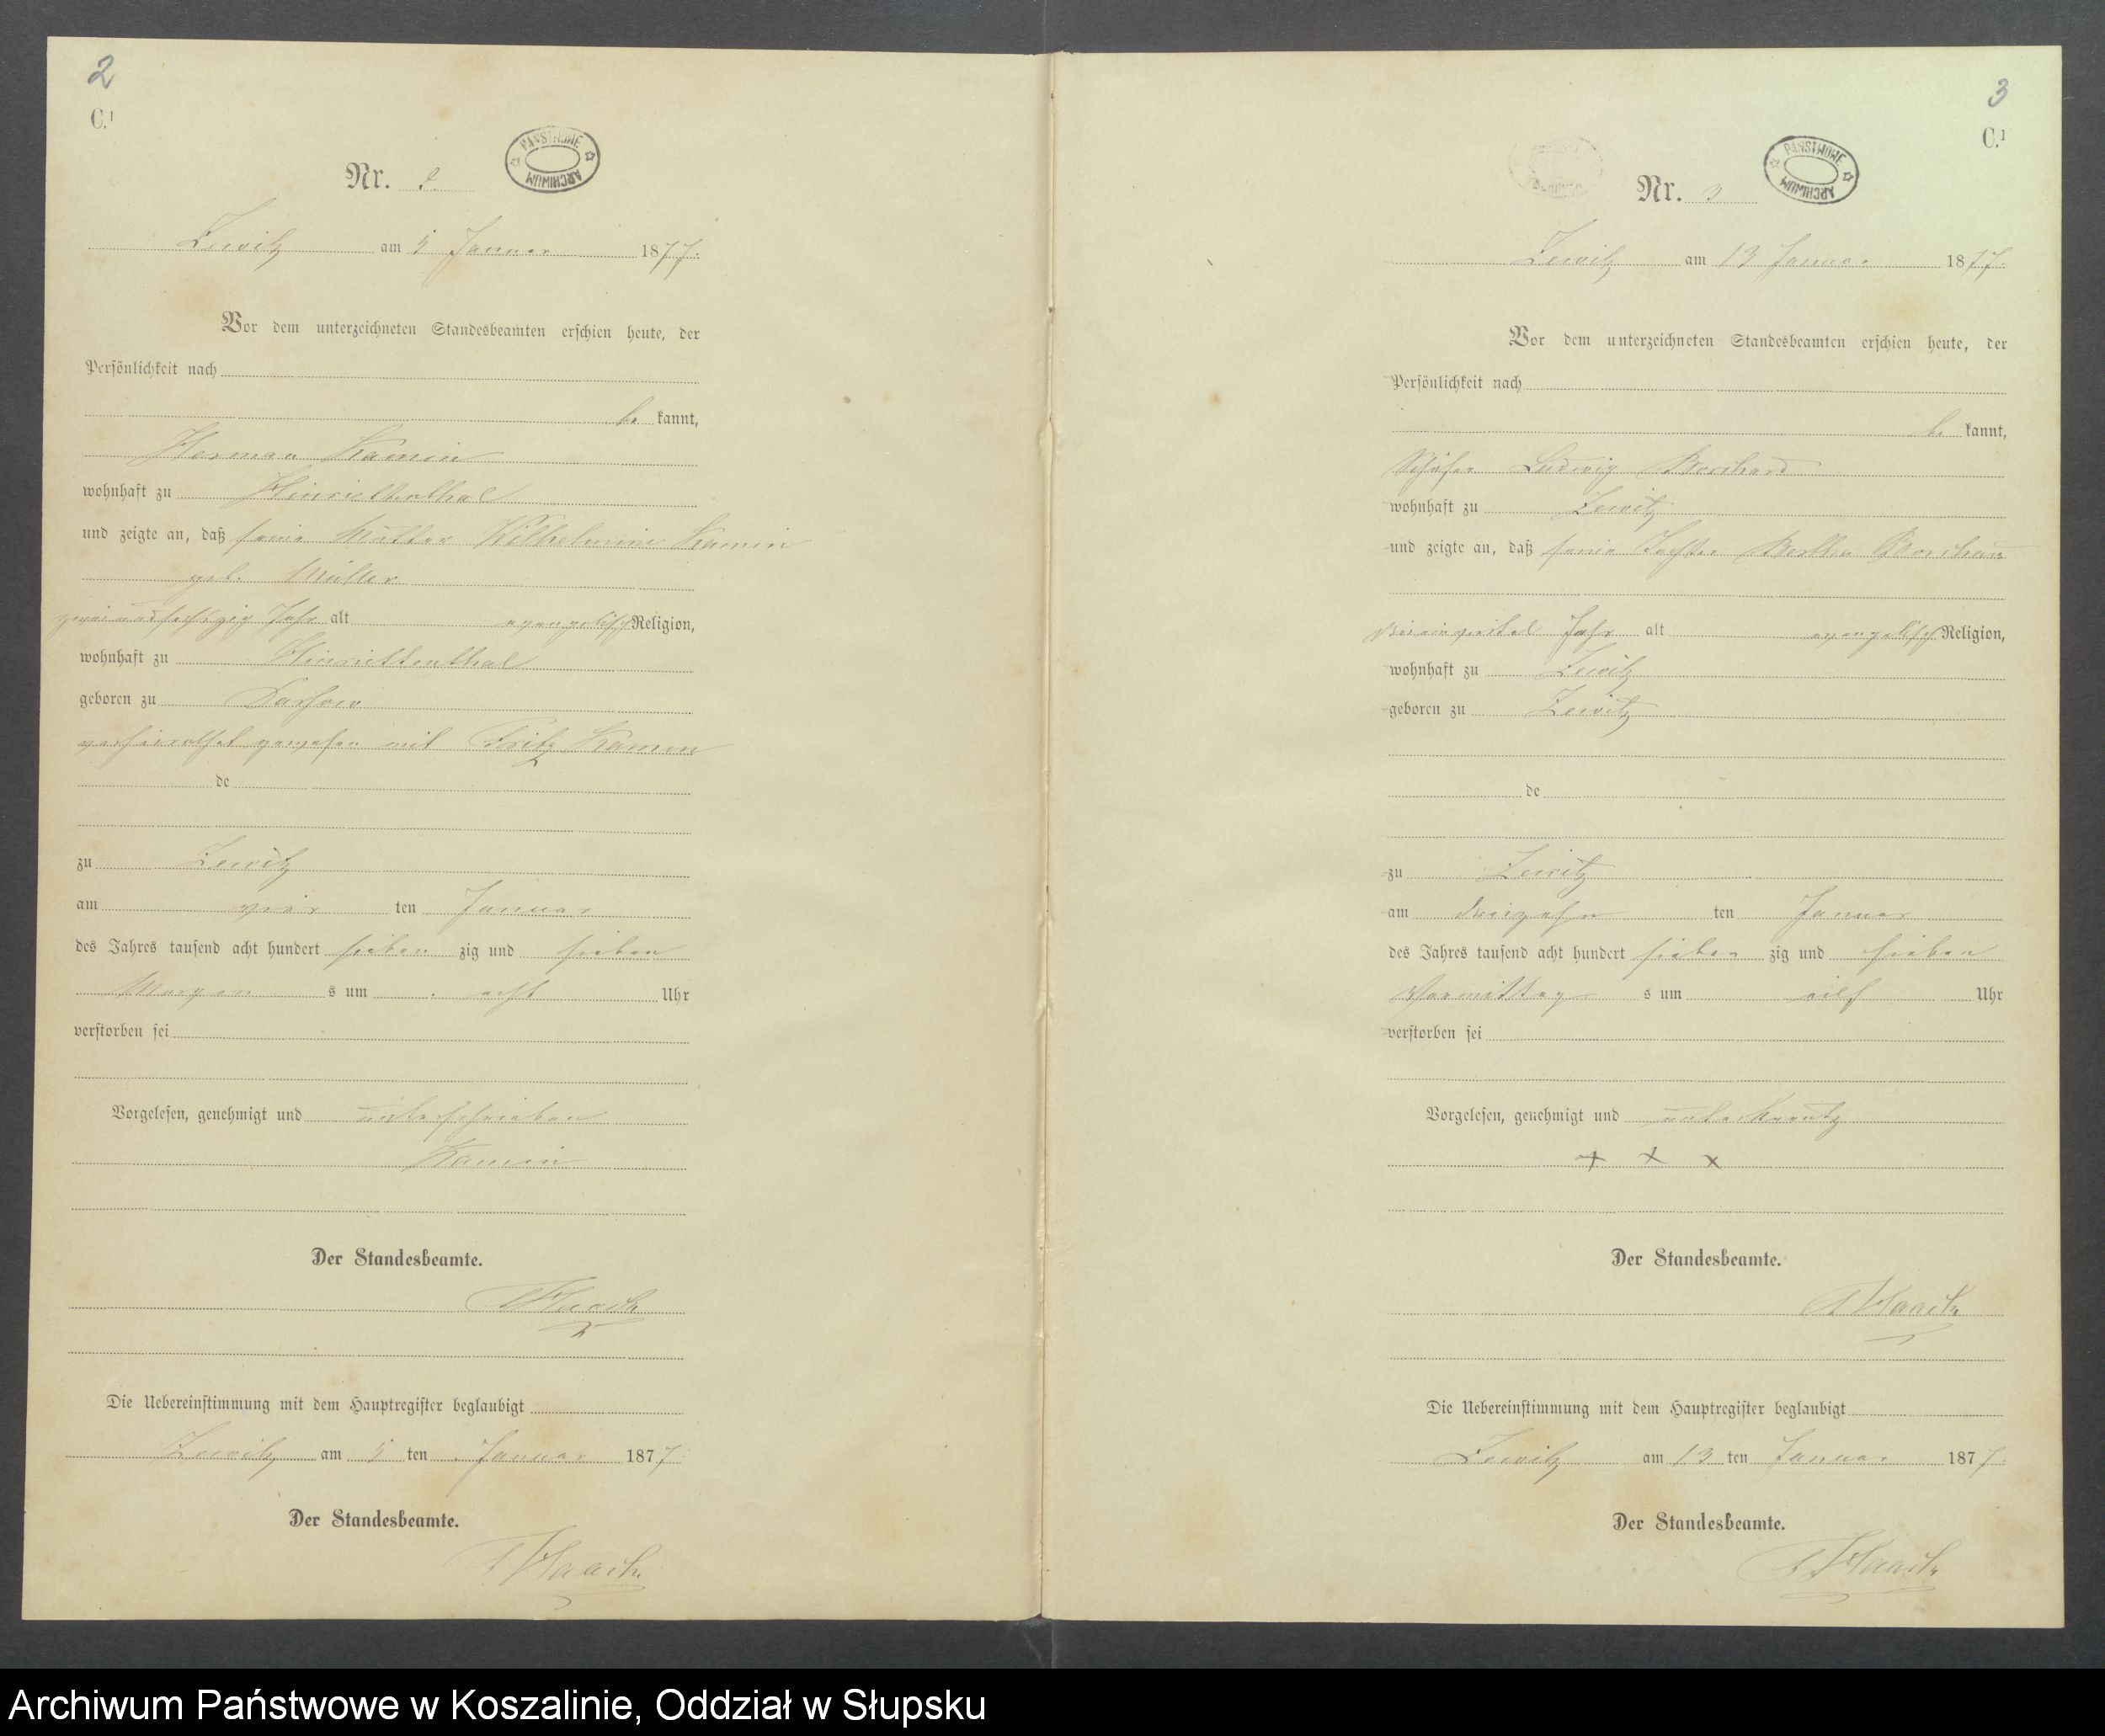 2
C.¹
PAŃSTWOWE ARCHIWUM
Nr. 2.
Zewitz am 5 Januar 1877.
Vor dem unterzeichneten Standesbeamten erschien heute, der
Persönlichkeit nach
be kannt,
Herman Kamin
wohnhaft zu Hinriettenthal
und zeigte an, daß seine Mutter Wilhelmine Kamin
geb. Müller
zweiundsechszig Jahr alt evangelisch Religion,
wohnhaft zu Hinriettenthal
geboren zu
verheirathet gewesen mit Fritz Kamin
de
zu Zewitz
am vier ten Januar
des Jahres tausend acht hundert sieben zig und sieben
Morgen s um acht Uhr
verstorben sei
Vorgelesen, genehmigt und unterschrieben
Kamin
Der Standesbeamte.
Haack
Die Uebereinstimmung mit dem Hauptregister beglaubigt
Zewitz am 5 ten Januar 1877
Der Standesbeamte.
Haack.
3
C.¹
PAŃSTWOWE ARCHIWUM
Nr. 3
Zewitz am 13 Januar 1877.
Vor dem unterzeichneten Standesbeamten erschien heute, der
Persönlichkeit nach
be kannt,
Schäfer Ludwig
wohnhaft zu Zewitz
und zeigte an, daß seine Tochter Bertha
Jahr alt evangelisch Religion,
wohnhaft zu Zewitz
geboren zu Zewitz
de
zu Zewitz
am dreizehn ten Januar
des Jahres tausend acht hundert sieben zig und sieben
Vormittag s um eilf Uhr
verstorben sei
Vorgelesen, genehmigt und unterkreutz
+ x x
Der Standesbeamte.
Haack
Die Uebereinstimmung mit dem Hauptregister beglaubigt
Zewitz am 13 ten Januar 1877.
Der Standesbeamte.
Haack
Archiwum Państwowe w Koszalinie, Oddział w Słupsku